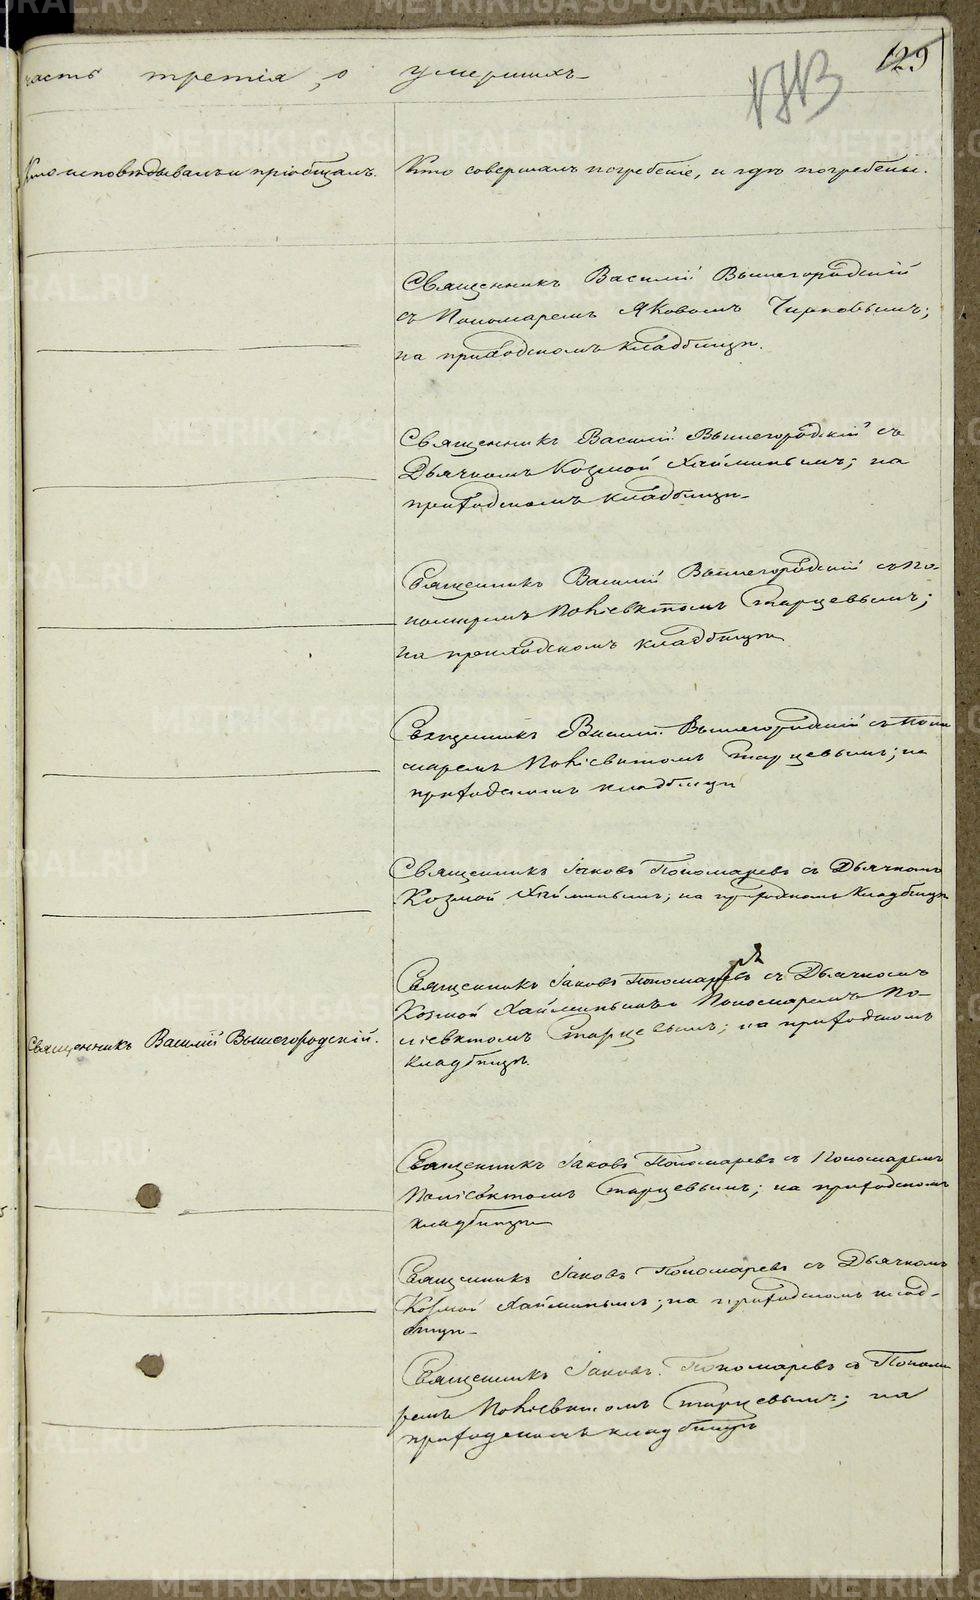 часть третія, о умершихъ
129
Кто исповѣдывалъ и пріобщалъ.
Кто совершалъ погребеніе, и гдѣ погребены.
Священникъ Василій Вышегородскій
съ Пономаремъ Яковомъ
на приходскомъ кладбищѣ.
Священникъ Василій Вышегородскій съ
Дьячкомъ Козмой Хайминымъ; на
приходскомъ кладбищѣ
Священникъ Василій Вышегородскій съ По-
номаремъ Поліевктомъ Старцевымъ;
на приходскомъ кладбищѣ
Священникъ Василій Вышегородскій съ Поно
маремъ Поліевктомъ Старцевымъ; на
приходскомъ кладбищѣ
Священникъ Іаковъ Пономаревъ съ Дьячкомъ
Козмой Хайминымъ; на приходскомъ кладбищѣ
Священникъ Іаковъ Пономаревъ съ Дьячкомъ
Козмой Хайминымъ и Пономаремъ По-
ліевктомъ Старцевымъ; на приходскомъ
кладбищѣ.
Священникъ Василій Вышегородскій.
Священникъ Іаковъ Пономаревъ съ Пономаремъ
Поліевктомъ Старцевымъ; на приходскомъ
кладбищѣ
Священникъ Іаковъ Пономаревъ съ Дьячкомъ
Козмой Хайминымъ; на приходскомъ клад-
бищѣ
Священникъ Іаковъ Пономаревъ съ Понома
ремъ Поліевктомъ Старцевымъ; на
приходскомъ кладбищѣ
METRIKI.GASO-URAL.RU